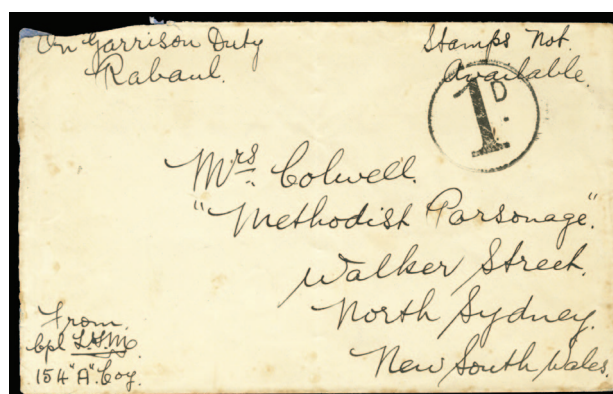 On Garrison Duty
Rabaul.
Stamps Not.
Available.
1D.
Mrs Colwell.
"Methodist Parsonage".
Walker Street.
North Sydney.
New South Wales.
From.
Cpl L.S.M.
154 "A" Coy.